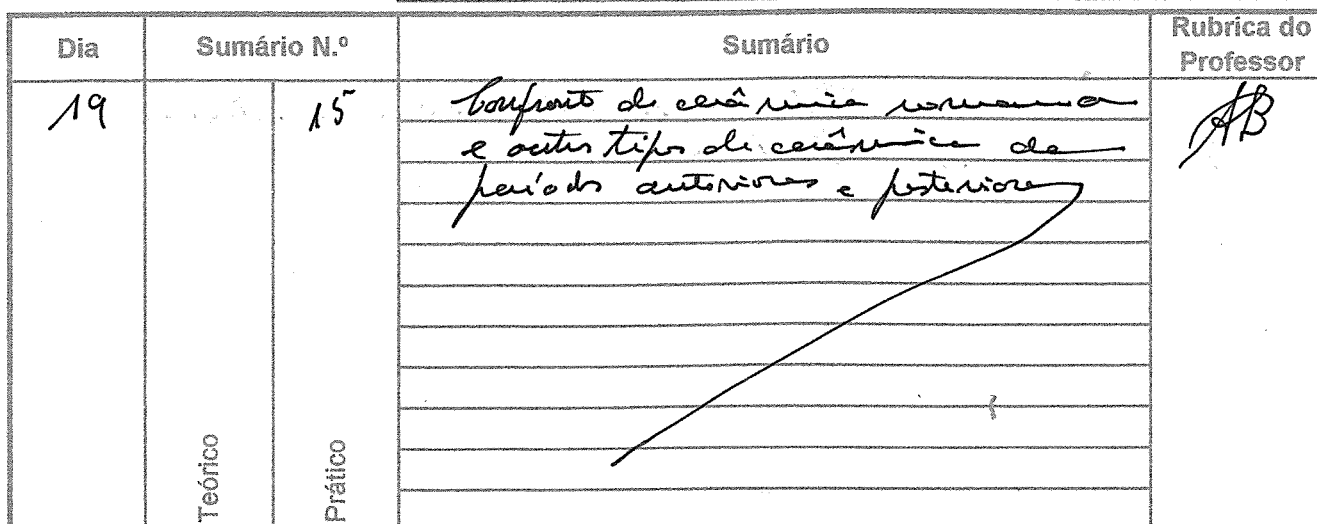 Dia Sumário N.º Sumário Rubrica do Professor
19 15 Confronto de cerâmica romana AB
e outros tipos de cerâmica de
períodos anteriores e posteriores
Teórico Prático